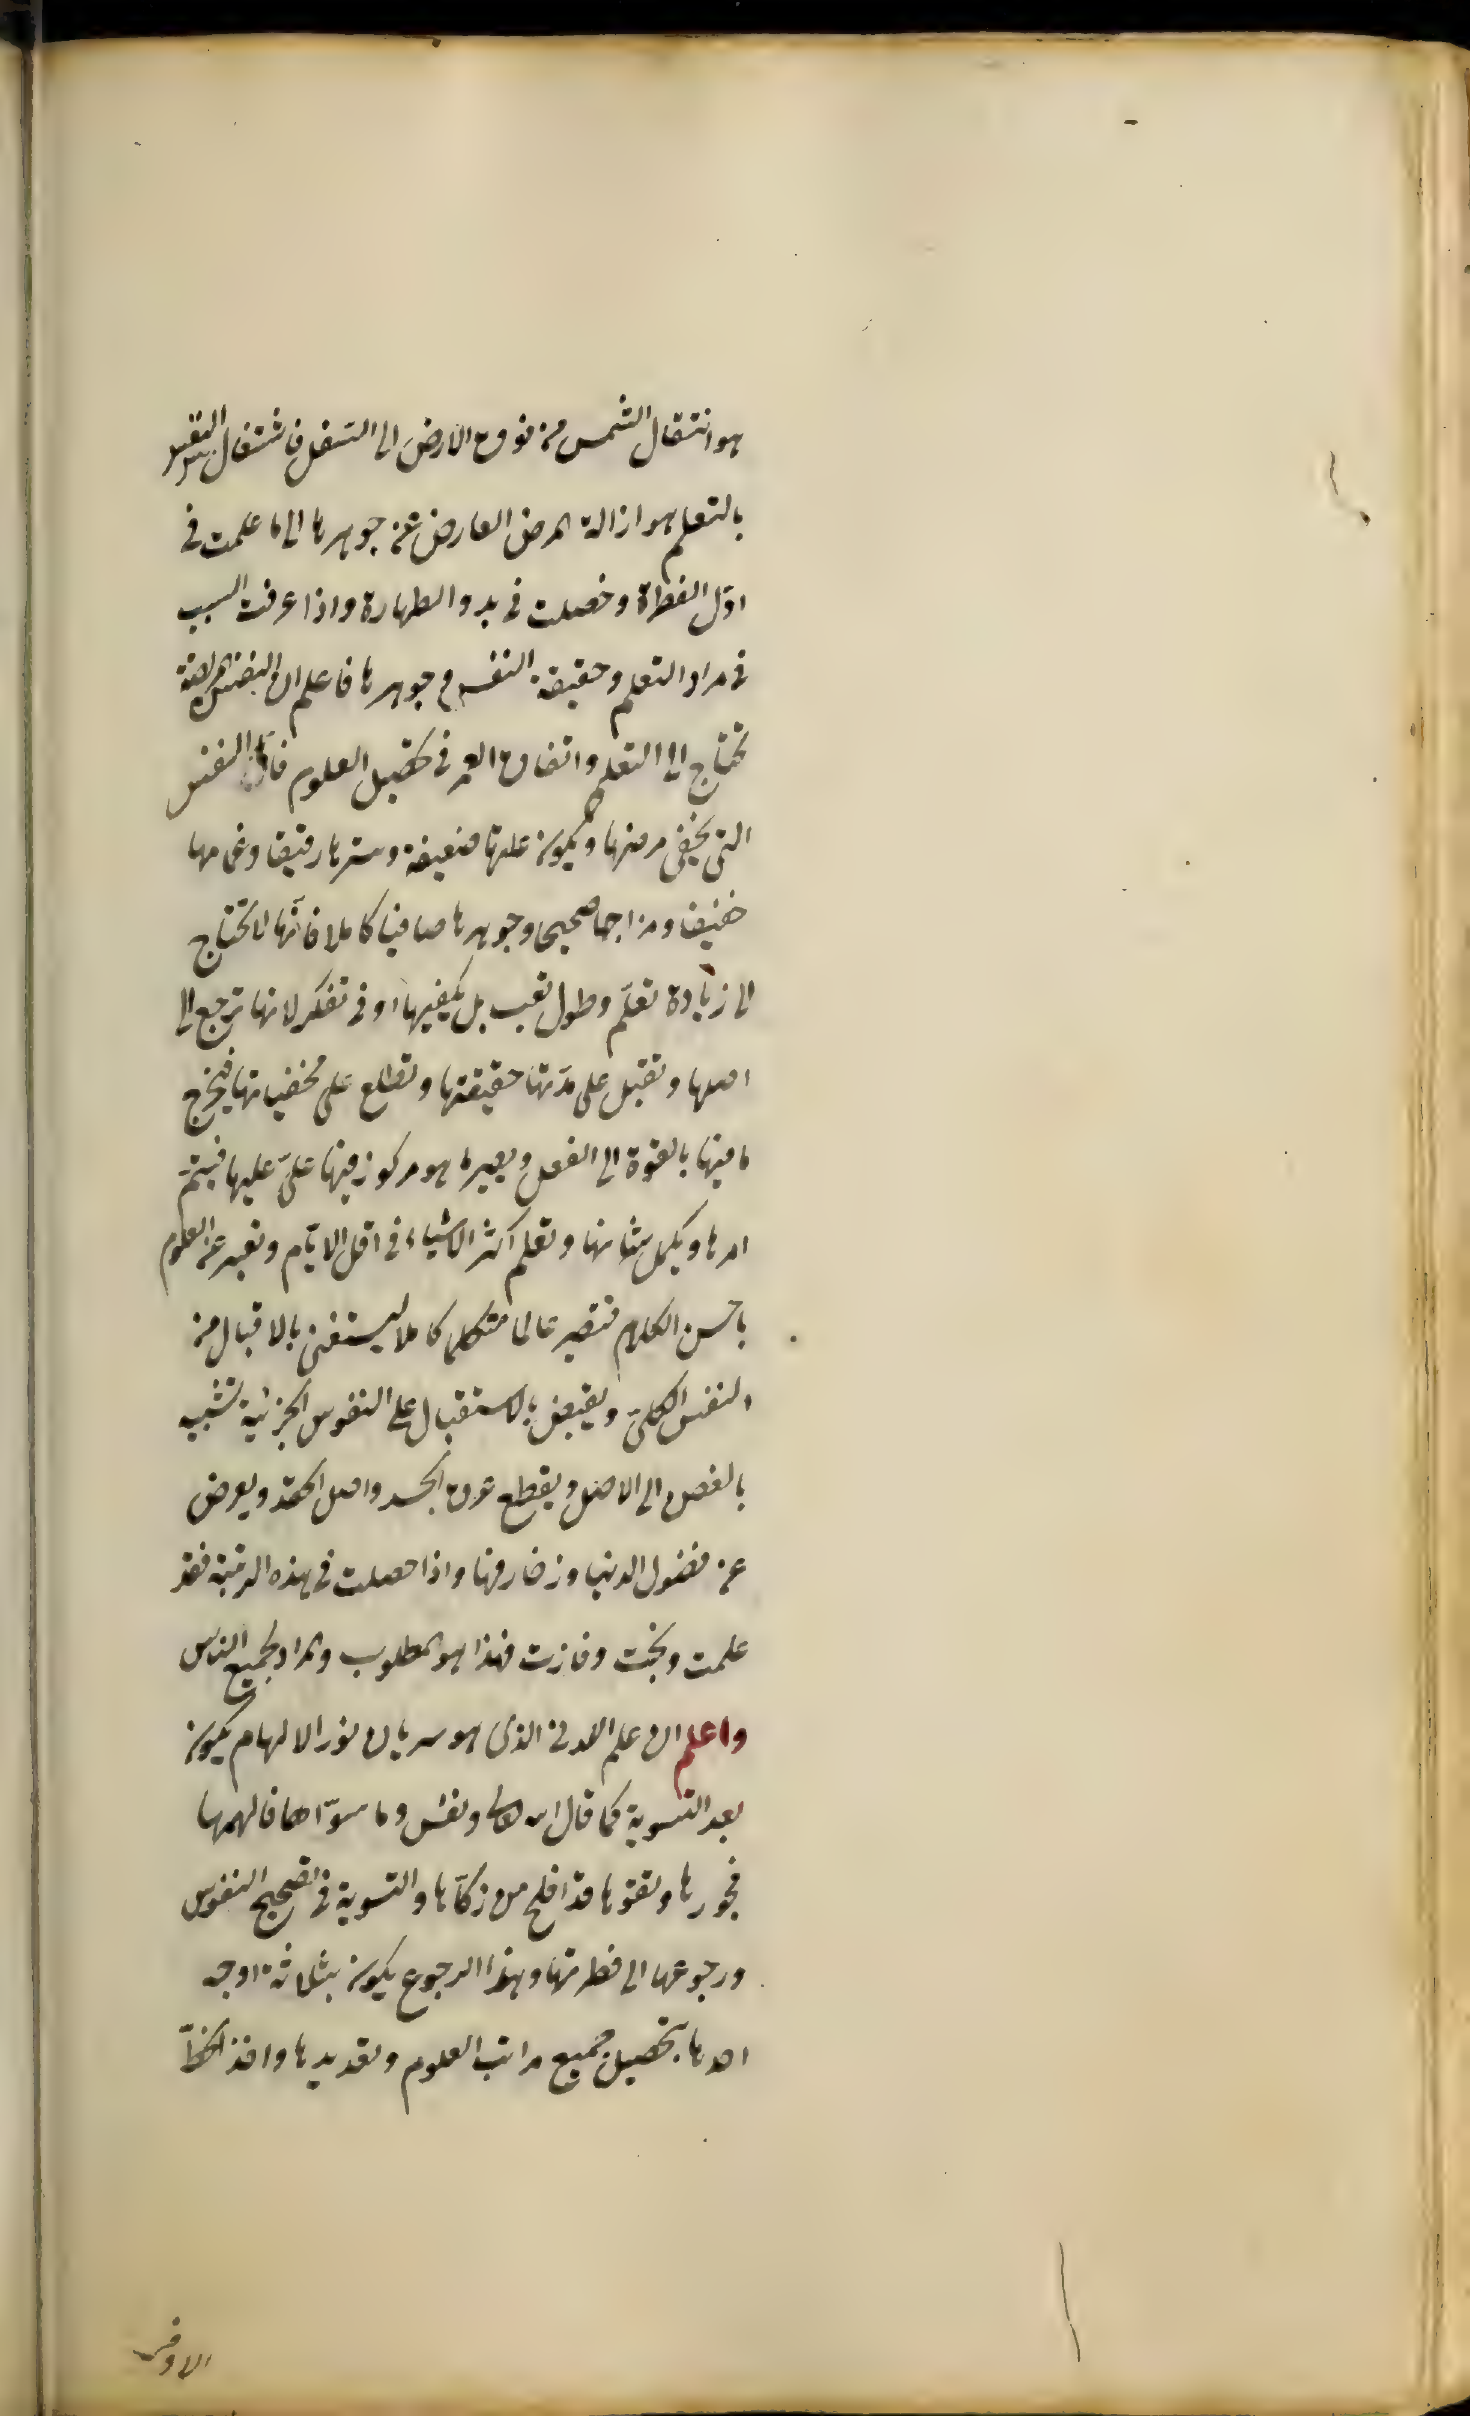 هو انتقال الشمس من فوق الارض الى السفل فاشتغال النفس
بالتعلم هو ازالة المرض العارض عن جوهرها الى ما علمت فى
اول الفطرة وحصلت فى بدو الطهارة واذا عرفت السبب
فى مراد التعلم وحقيقة النفس وجوهرها فاعلم ان النفس المريضة
تحتاج الى التعلم وانفاق العمر فى تحصيل العلوم فامّا النفس
التى يخفى مرضها ويكون علتها ضعيفة وسترها رقيقا وغمامها
خفيفا ومزاجها صحيحا وجوهرها صافيا كاملا فانّها لا تحتاج
الى زيادة تعلّم وطول تعب بل يكفيها اوفى تفكر لانها ترجع الى
اصلها وتقبل على حقيقتها وتطلع على مخفياتها فيخرج
ما فيها بالقوة الى الفعل ويصير ما هو مركوز فيها عليها فيتمّ
امرها ويكمل شانها وتعلم اكثر الاشياء فى اقل الايّام وتعبر عن العلوم
باحسن الكلام فتصير عالما متكلما كاملا يستغنى بالاقبال من
النفس الكلىّ ويقبض بالاستقبال على النفوس الجزئية تشبه
بالفصل الى الاصل ويقطع عرق الحسد واصل الحقد ويعرض
عن فضول الدنيا وزخارفها واذا حصلت فى هذه الرتبة فقد
علمت ونجت وفازت فهذا هو المطلوب والمراد لجميع الناس
واعلم ان علم اللدنى الذى هو سريان نور الالهام يكون
بعد التسوية كما قال الله تعالى ونفس وما سوّاها فالهمها
فجورها وتقوها قد افلح من زكّاها والتسوية فى تصحيح النفوس
ورجوعها الى فطرتها وهذا الرجوع يكون بثلاثة اوجه
احدها بتحصيل جميع مراتب العلوم وتعديدها واخذ الحظّ
الاوفر